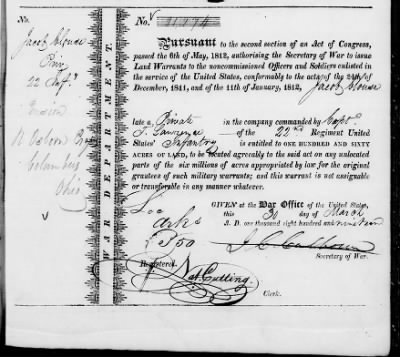 No.
Jacob Clouse
Priv
22 Inf.y
Osborn
Columbus
Ohio
WAR DEPARTMENT.
No.
Pursuant to the second section of an Act of Congress,
passed the 6th of May, 1812, authorising the Secretary of War to issue
Land Warrants to the noncommissioned Officers and Soldiers enlisted in
the service of the United States, conformably to the acts of the 24th
December, 1811, and of the 11th of January, 1812, Jacob Clouse
late a Private in the company commanded by Capt.
T. Lawrence of the 22nd Regiment United
States' Infantry
is entitled to ONE HUNDRED AND SIXTY
ACRES OF LAND, to be located agreeably to the said act on any unlocated
parts of the six millions of acres appropriated by law for the original
grantees of such military warrants; and this warrant is not assignable
or transferable in any manner whatever.
GIVEN at the War Office of the United States,
this day of March
A. D. one thousand eight hundred and nineteen
Loc
Arks
J. C. Calhoun
Secretary of War.
Registered
Nat. Cutting.
Clerk.